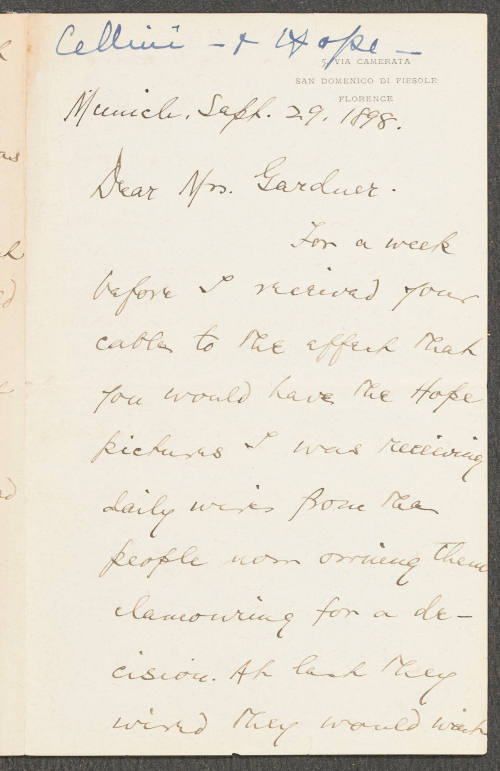 Cellini - + Hope -
5, VIA CAMERATA
SAN DOMENICO DI FIESOLE
FLORENCE
Munich, Sept. 29, 1898.
Dear Mrs. Gardner.
For a week
before I received your
cable to the effect that
you would have the Hope
pictures I was receiving
daily wires from the
people now owning them
clamouring for a de-
cision. At last they
wired they would wait